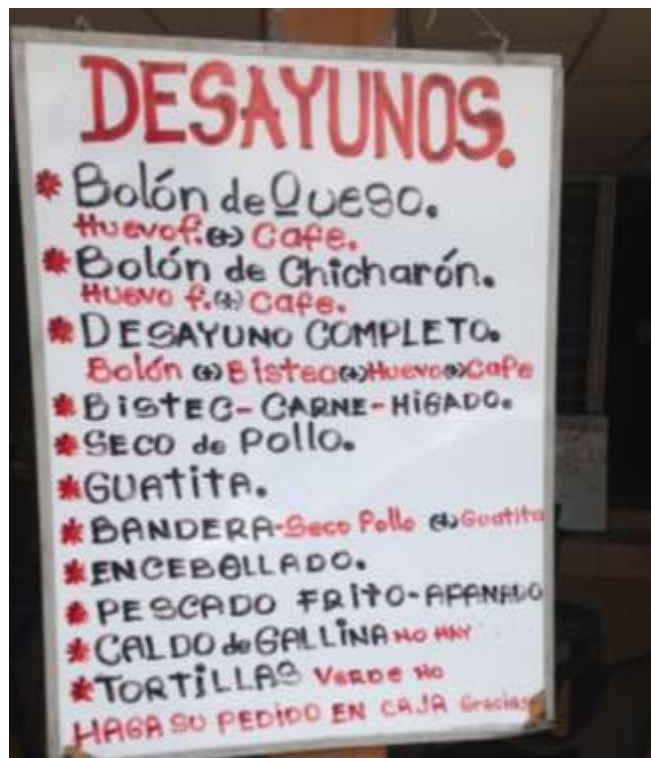 DESAYUNOS.
* Bolón de QUESO.
Huevo f. (+) Cafe.
* Bolón de Chicharón.
Huevo f. (+) Cafe.
* DESAYUNO COMPLETO.
Bolón (+) Bistec (+) Huevo (+) Cafe
* BISTEC - CARNE - HIGADO.
* SECO de Pollo.
* GUATITA.
* BANDERA - Seco Pollo (+) Guatita
* ENCEBOLLADO.
* PESCADO FRITO - APANADO
* CALDO de GALLINA NO HAY
* TORTILLAS VERDE NO
HAGA SU PEDIDO EN CAJA Gracias